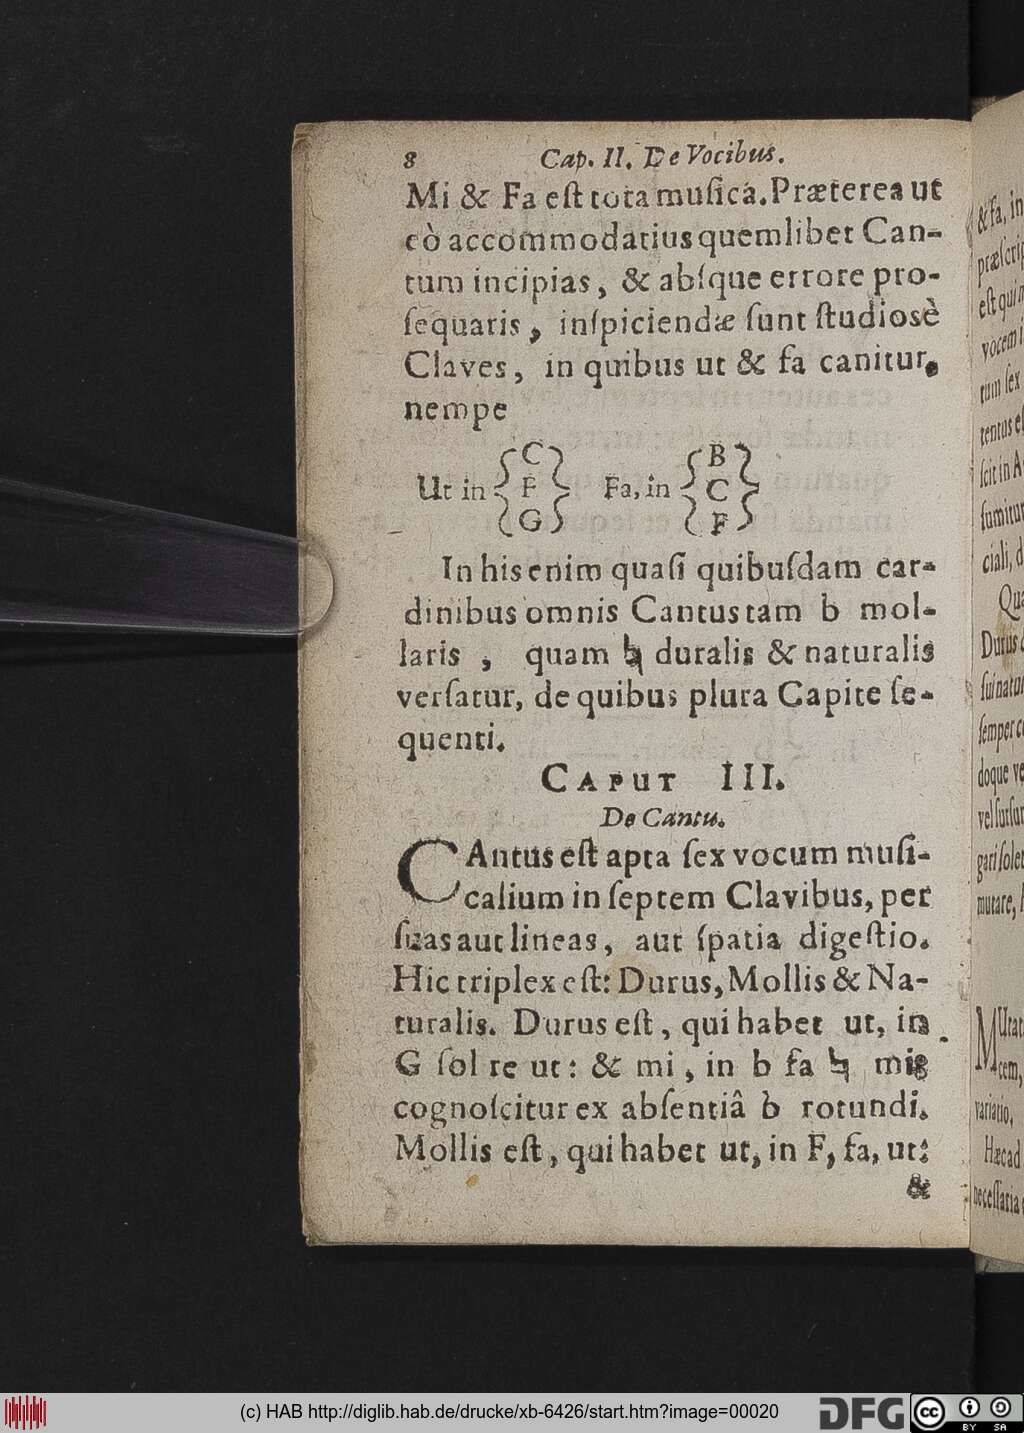 8 Cap. II. De Vocibus.
Mi & Fa eſt tota muſica. Præterea ut
eò accommodatius quemlibet Can-
tum incipias, & abſque errore pro-
ſequaris, inſpiciendæ ſunt ſtudiosè
Claves, in quibus ut & fa canitur,
nempe
Ut in { C F G } Fa, in { B C F }
In his enim quaſi quibuſdam car-
dinibus omnis Cantus tam b mol-
laris, quam ♮ duralis & naturalis
verſatur, de quibus plura Capite ſe-
quenti.
CAPUT III.
De Cantu.
CAntus eſt apta ſex vocum muſi-
calium in ſeptem Clavibus, per
ſuas aut lineas, aut ſpatia digeſtio.
Hic triplex eſt: Durus, Mollis & Na-
turalis. Durus eſt, qui habet ut, in
G ſol re ut: & mi, in b fa ♮ mi;
cognoſcitur ex abſentiâ b rotundi.
Mollis eſt, qui habet ut, in F, fa, ut:
&
& fa, in
præſcrip
eſt qui
vocem
tum ſex
tentus e
ſcit in A
ſumitur
ciali, d
Qua
Durus
ſui natu
ſemper c
doque ve
vel ſurſu
gari ſolet
mutare,
MUtat
cem,
variatio,
Hæc ad
neceſſaria
(c) HAB http://diglib.hab.de/drucke/xb-6426/start.htm?image=00020
DFG
cc
BY SA